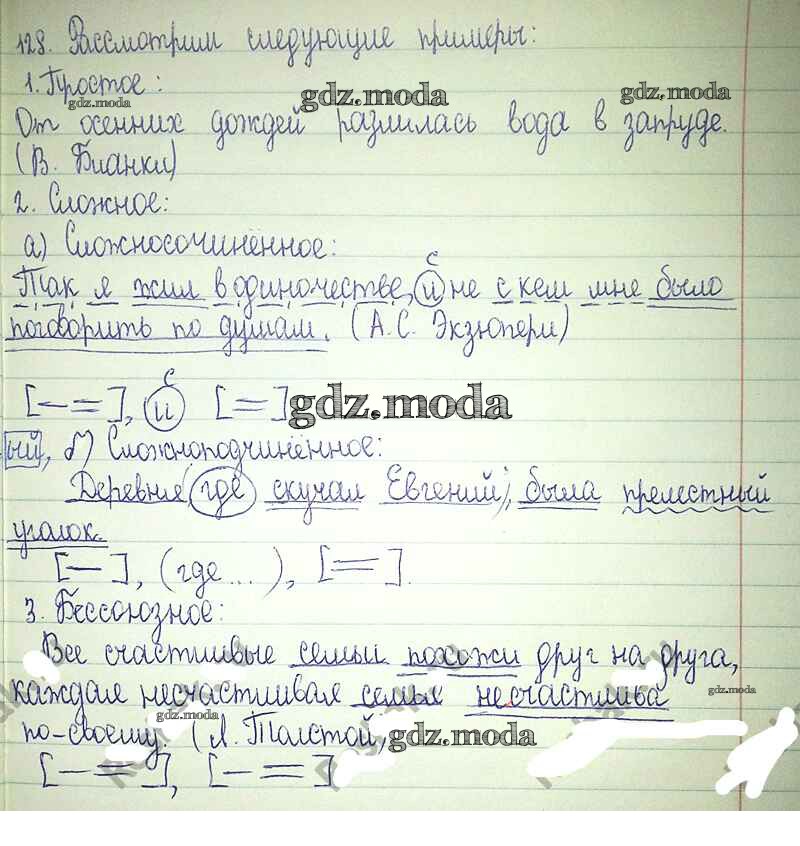 128. Рассмотрим следующие примеры:
1. Простое:
gdz.moda gdz.moda gdz.moda
От осенних дождей разлилась вода в запруде.
(В. Бианки)
2. Сложное:
а) Сложносочинённое:
с
Так я жил в одиночестве, и не с кем мне было
поговорить по душам. (А.С. Экзюпери)
с
[— =], и [=]
gdz.moda
ый, б) Сложноподчинённое:
Деревня, где скучал Евгений, была прелестный
уголок.
[—], (где ...), [=].
3. Бессоюзное:
Все счастливые семьи похожи друг на друга,
каждая несчастливая семья несчастлива
gdz.moda
gdz.moda
по-своему (Л. Толстой,
gdz.moda
[— =], [— =]